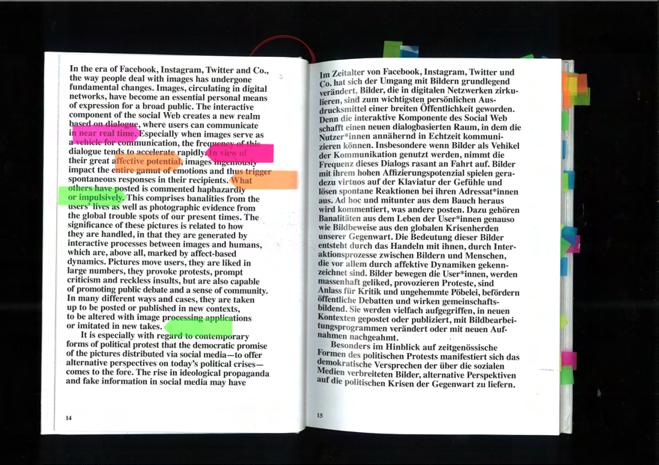 In the era of Facebook, Instagram, Twitter and Co.,
the way people deal with images has undergone
fundamental changes. Images, circulating in digital
networks, have become an essential personal means
of expression for a broad public. The interactive
component of the social Web creates a new realm
based on dialogue, where users can communicate
in near real time. Especially when images serve as
a vehicle for communication, the frequency of this
dialogue tends to accelerate rapidly. In view of
their great affective potential, images ingeniously
impact the entire gamut of emotions and thus trigger
spontaneous responses in their recipients. What
others have posted is commented haphazardly
or impulsively. This comprises banalities from the
users' lives as well as photographic evidence from
the global trouble spots of our present times. The
significance of these pictures is related to how
they are handled, in that they are generated by
interactive processes between images and humans,
which are, above all, marked by affect-based
dynamics. Pictures move users, they are liked in
large numbers, they provoke protests, prompt
criticism and reckless insults, but are also capable
of promoting public debate and a sense of community.
In many different ways and cases, they are taken
up to be posted or published in new contexts,
to be altered with image processing applications
or imitated in new takes.
It is especially with regard to contemporary
forms of political protest that the democratic promise
of the pictures distributed via social media—to offer
alternative perspectives on today's political crises—
comes to the fore. The rise in ideological propaganda
and fake information in social media may have
14
Im Zeitalter von Facebook, Instagram, Twitter und
Co. hat sich der Umgang mit Bildern grundlegend
verändert. Bilder, die in digitalen Netzwerken zirku-
lieren, sind zum wichtigsten persönlichen Aus-
drucksmittel einer breiten Öffentlichkeit geworden.
Denn die interaktive Komponente des Social Web
schafft einen neuen dialogbasierten Raum, in dem die
Nutzer*innen annähernd in Echtzeit kommuni-
zieren können. Insbesondere wenn Bilder als Vehikel
der Kommunikation genutzt werden, nimmt die
Frequenz dieses Dialogs rasant an Fahrt auf. Bilder
mit ihrem hohen Affizierungspotenzial spielen gera-
dezu virtuos auf der Klaviatur der Gefühle und
lösen spontane Reaktionen bei ihren Adressat*innen
aus. Ad hoc und mitunter aus dem Bauch heraus
wird kommentiert, was andere posten. Dazu gehören
Banalitäten aus dem Leben der User*innen genauso
wie Bildbeweise aus den globalen Krisenherden
unserer Gegenwart. Die Bedeutung dieser Bilder
entsteht durch das Handeln mit ihnen, durch Inter-
aktionsprozesse zwischen Bildern und Menschen,
die vor allem durch affektive Dynamiken gekenn-
zeichnet sind. Bilder bewegen die User*innen, werden
massenhaft geliked, provozieren Proteste, sind
Anlass für Kritik und ungehemmte Pöbelei, befördern
öffentliche Debatten und wirken gemeinschafts-
bildend. Sie werden vielfach aufgegriffen, in neuen
Kontexten gepostet oder publiziert, mit Bildbearbei-
tungsprogrammen verändert oder mit neuen Auf-
nahmen nachgeahmt.
Besonders im Hinblick auf zeitgenössische
Formen des politischen Protests manifestiert sich das
demokratische Versprechen der über die sozialen
Medien verbreiteten Bilder, alternative Perspektiven
auf die politischen Krisen der Gegenwart zu liefern.
15